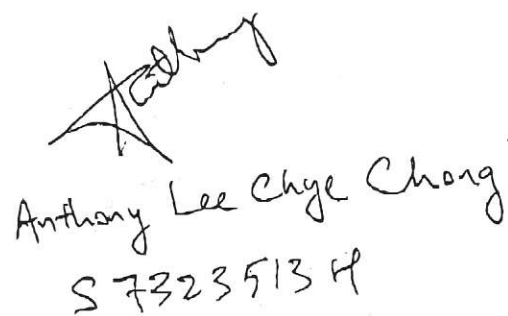 Anthony
Anthony Lee Chye Chong
S7323513H